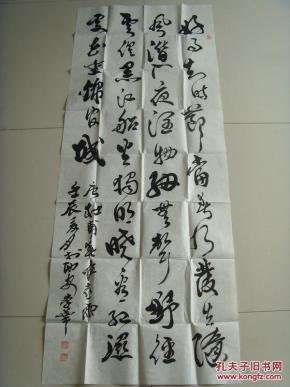 好雨知時節當春乃發生隨
風潛入夜潤物細無聲野徑
雲俱黑江船火獨明曉看紅濕
處花重錦官城
唐杜甫春夜喜雨
壬辰
孔夫子旧书网